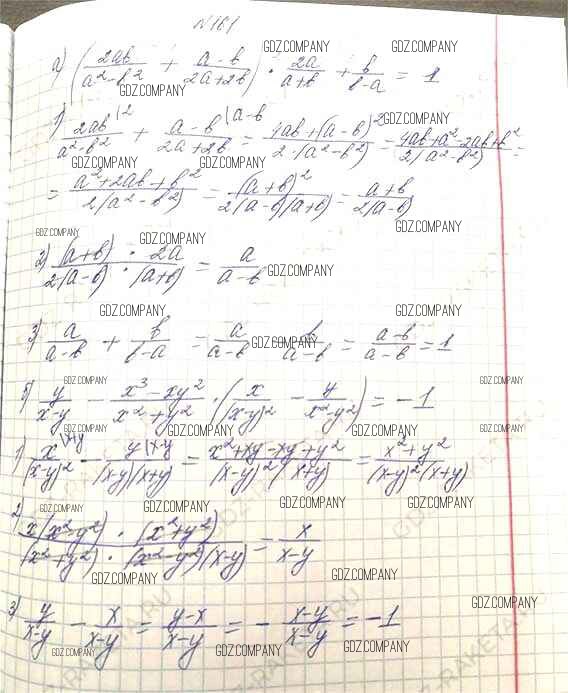 №161
а) (2ab/(a²-b²) + (a-b)/(2a+2b)) · 2a/(a+b) + b/(b-a) = 1
1) 2ab|2/(a²-b²) + (a-b|a-b)/(2a+2b) = (4ab+(a-b)²)/(2·(a²-b²)) = (4ab+a²-2ab+b²)/(2(a²-b²)) =
= (a²+2ab+b²)/(2(a²-b²)) = (a+b)²/(2(a-b)(a+b)) = (a+b)/(2(a-b))
2) ((a+b) · 2a)/(2(a-b) · (a+b)) = a/(a-b)
3) a/(a-b) + b/(b-a) = a/(a-b) b/(a-b) = (a-b)/(a-b) = 1
б) y/(x-y) - (x³-xy²)/(x²+y²) · (x/(x-y)² - y/(x²-y²)) = -1
1) x|x+y/(x-y)² - y|x-y/((x-y)(x+y)) = (x²+xy-xy+y²)/((x-y)²(x+y)) = (x²+y²)/((x-y)²(x+y))
2) (x(x²-y²) · (x²+y²))/((x²+y²) · (x²-y²)(x-y)) = x/(x-y)
3) y/(x-y) - x/(x-y) = (y-x)/(x-y) = -(x-y)/(x-y) = -1
GDZ.COMPANY
GDZ-RAKETA.RU